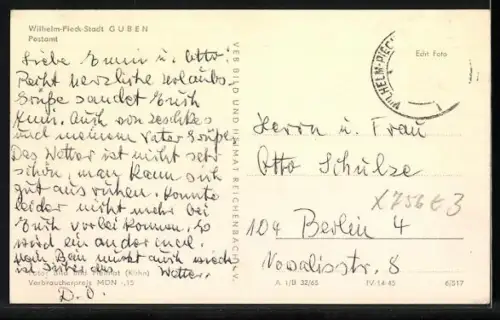 Wilhelm-Pieck-Stadt GUBEN
Postamt
Liebe Emmi u. Otto!
Recht herzliche Urlaubs
Grüße sendet Euch
Auch von
und meinem Vater Grüße.
Das Wetter ist nicht sehr
schön, man kann sich
gut ausruhen. Konnte
leider nicht mehr bei
Euch vorbei kommen. So
wird ein ander mal.
nach
ist
Wetter.
D. O.
Foto: Bild und Heimat (Kühn)
Verbraucherpreis MDN -,15
VEB BILD UND HEIMAT REICHENBACH i. V.
WILHELM-PIECK
Echt Foto
Herrn u. Frau
Otto Schulze
X756E3
104 Berlin 4
Novalisstr. 8
A 1/B 32/65
IV-14-45
6/517